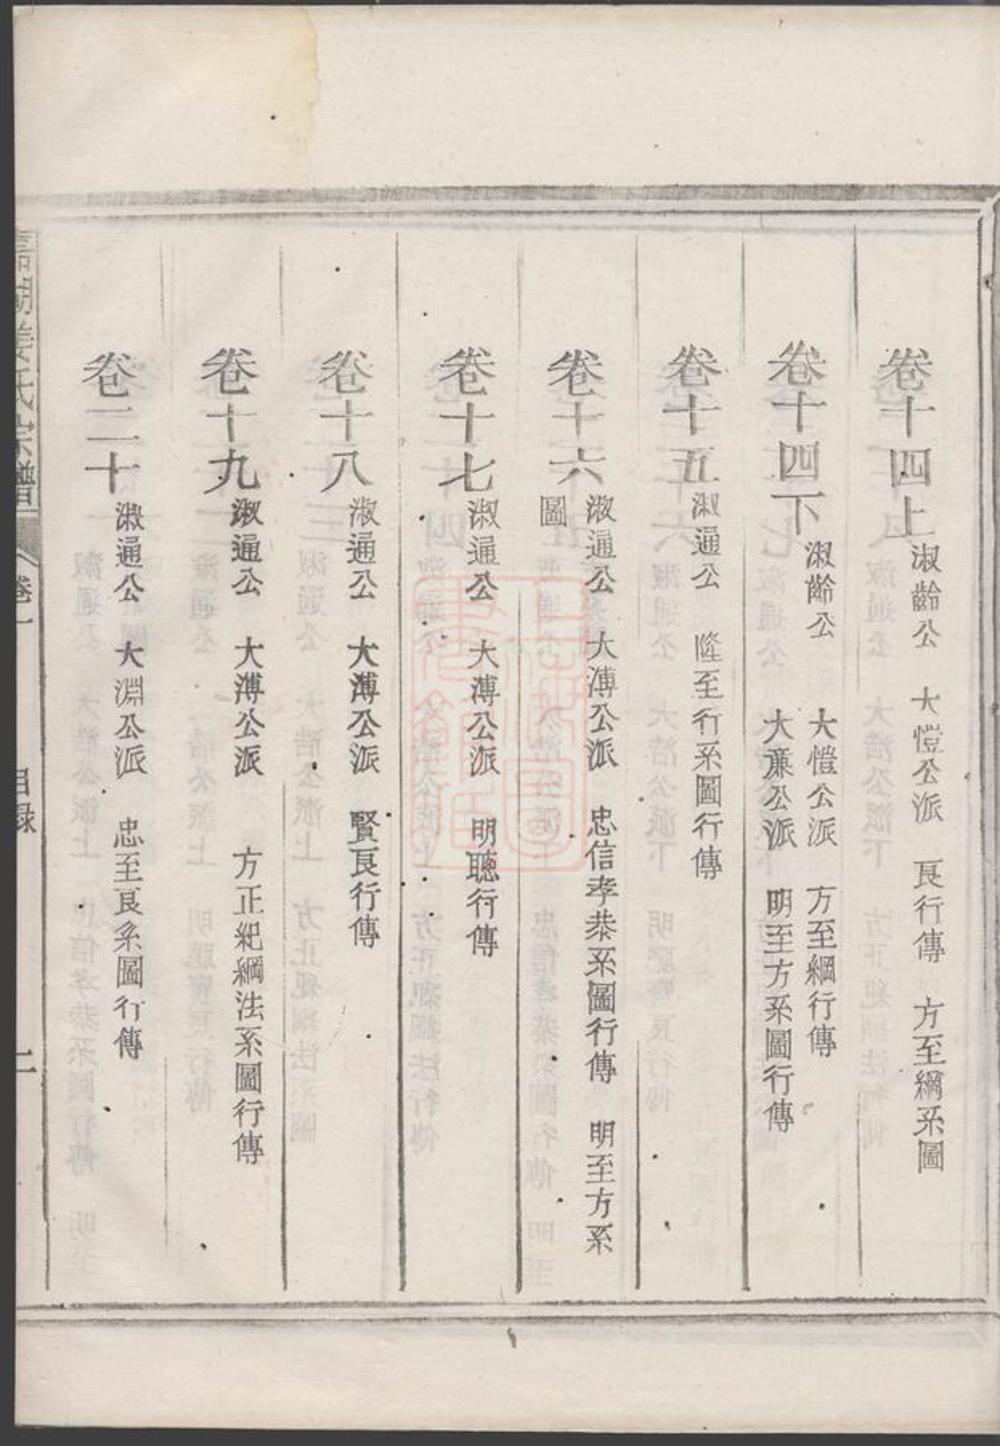 卷十四上 淑齡公 大愷公派 艮行傳 方至綱系圖
卷十四下 淑齡公 大愷公派 方至綱行傳
大亷公派 明至方系圖行傳
卷十五 淑通公 隆至行系圖行傳
卷十六 淑通公 大溥公派 忠信孝恭系圖行傳 明至方系
圖
卷十七 淑通公 大溥公派 明聰行傳
卷十八 淑通公 大溥公派 賢艮行傳
卷十九 淑通公 大溥公派 方正紀綱法系圖行傳
卷二十 淑通公 大淵公派 忠至艮系圖行傳
姜氏宗譜 卷一 目錄 二